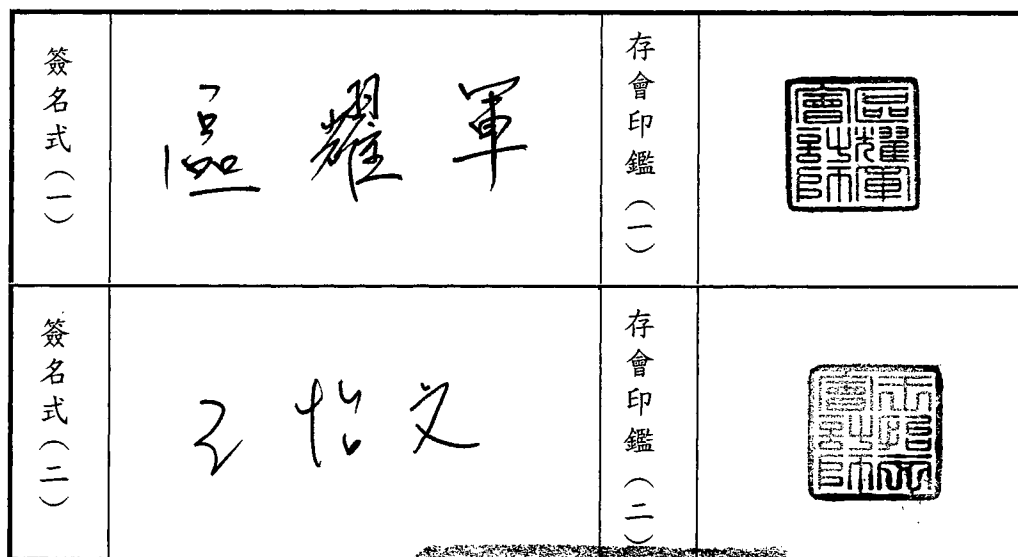 簽名式（一）
區耀軍
存會印鑑（一）
區耀軍會計師
簽名式（二）
王怡文
存會印鑑（二）
王怡文會計師